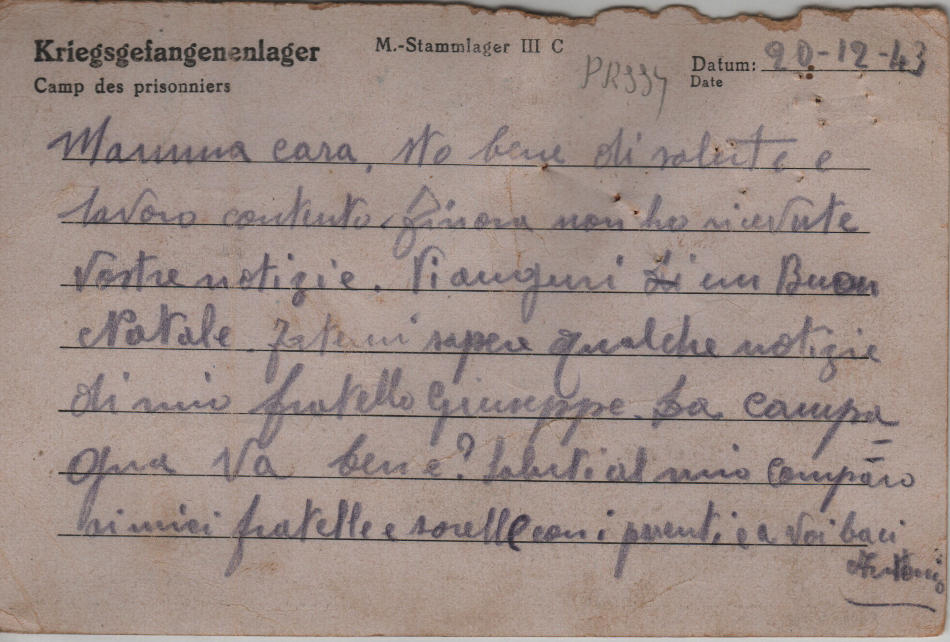 Kriegsgefangenenlager
M.-Stammlager III C
Camp des prisonniers
Datum: 20-12-43
Date
Mamma cara, Sto bene di salute e
lavoro contento. Finora non ho ricevute
vostre notizie. Vi auguri di un Buon
Natale. Fatemi sapere qualche notizie
di mio fratello Giuseppe. La campa=
gna va bene? Saluti al mio comparo
ai miei fratelli e sorelle con i parenti e a voi baci
Antonio